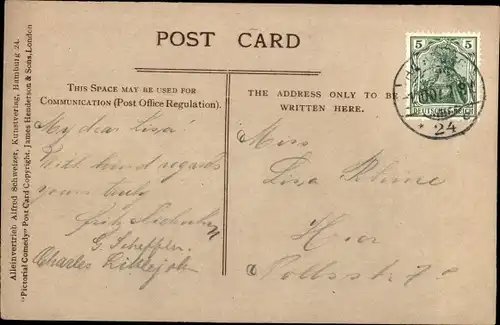 POST CARD
THIS SPACE MAY BE USED FOR
COMMUNICATION (Post Office Regulation).
THE ADDRESS ONLY TO BE
WRITTEN HERE.
Alleinvertrieb Alfred Schweizer, Kunstverlag, Hamburg 24.
"Pictorial Comedy" Post Card Copyright, James Henderson & Sons, London
My dear Lisa!
With kind regards
yours truly
Fritz
G. Scheffler
Charles Littlejohn
Miss
Lisa Rhine
Hier
5 5
24